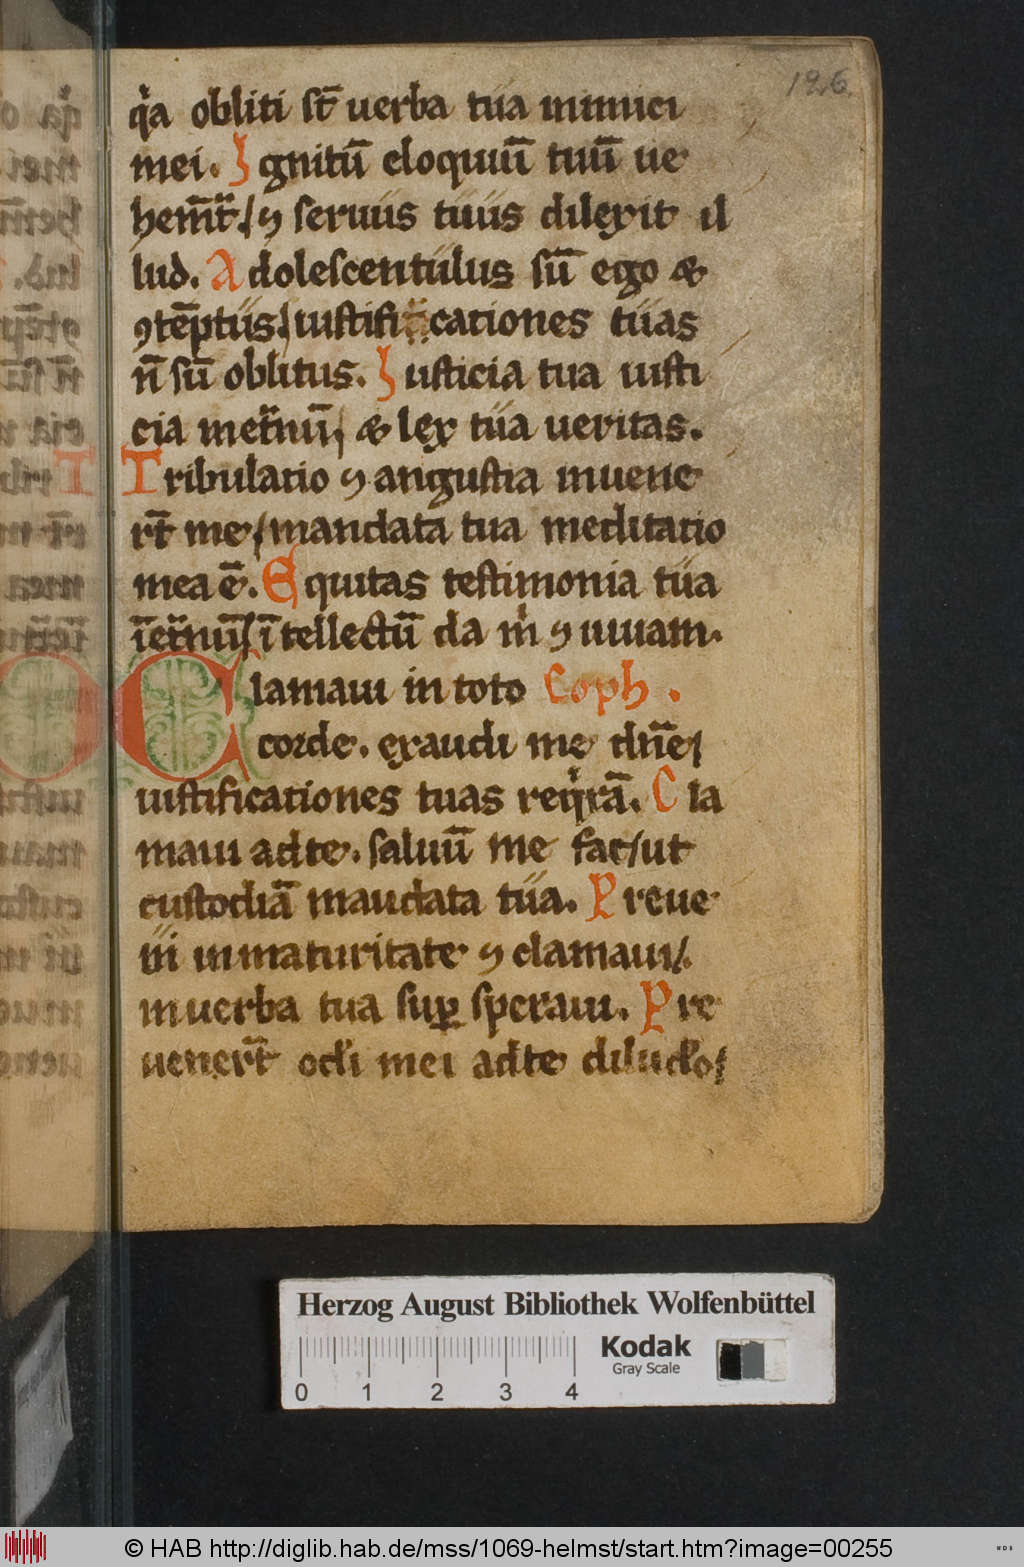 126
qͥa obliti st̅ uerba tua inimici
mei. Ignitu̅ eloquiu̅ tuu̅ ue
hem̅t᷑. ⁊ seruus tuus dilexit il
lud. Adolescentulus su̅ ego &
ꝯte̅ptus iustificationes tuas
n̅ su̅ oblitus. Iusticia tua iusti
cia inet᷑nu̅, & lex tua ueritas.
Tribulatio ⁊ angustia inuene
rt̅ me, mandata tua meditatio
mea e̅. Equitas testimonia tua
i̅et᷑nu̅, i̅tellectu̅ da m ͥ ⁊ uiuam.
Clamaui in toto Coph.
corde. exaudi me dn̅e,
iustificationes tuas reqͥra̅. Cla
maui ad te. saluu̅ me fac, ut
custodia̅ mandata tua. Preue
ni in maturitate ⁊ clamaui,
in uerba tua suꝑ speraui. Pre
uenert̅ oc̓li mei ad te diluc̓lo,
Herzog August Bibliothek Wolfenbüttel
Kodak
Gray Scale
0 1 2 3 4
© HAB http://diglib.hab.de/mss/1069-helmst/start.htm?image=00255